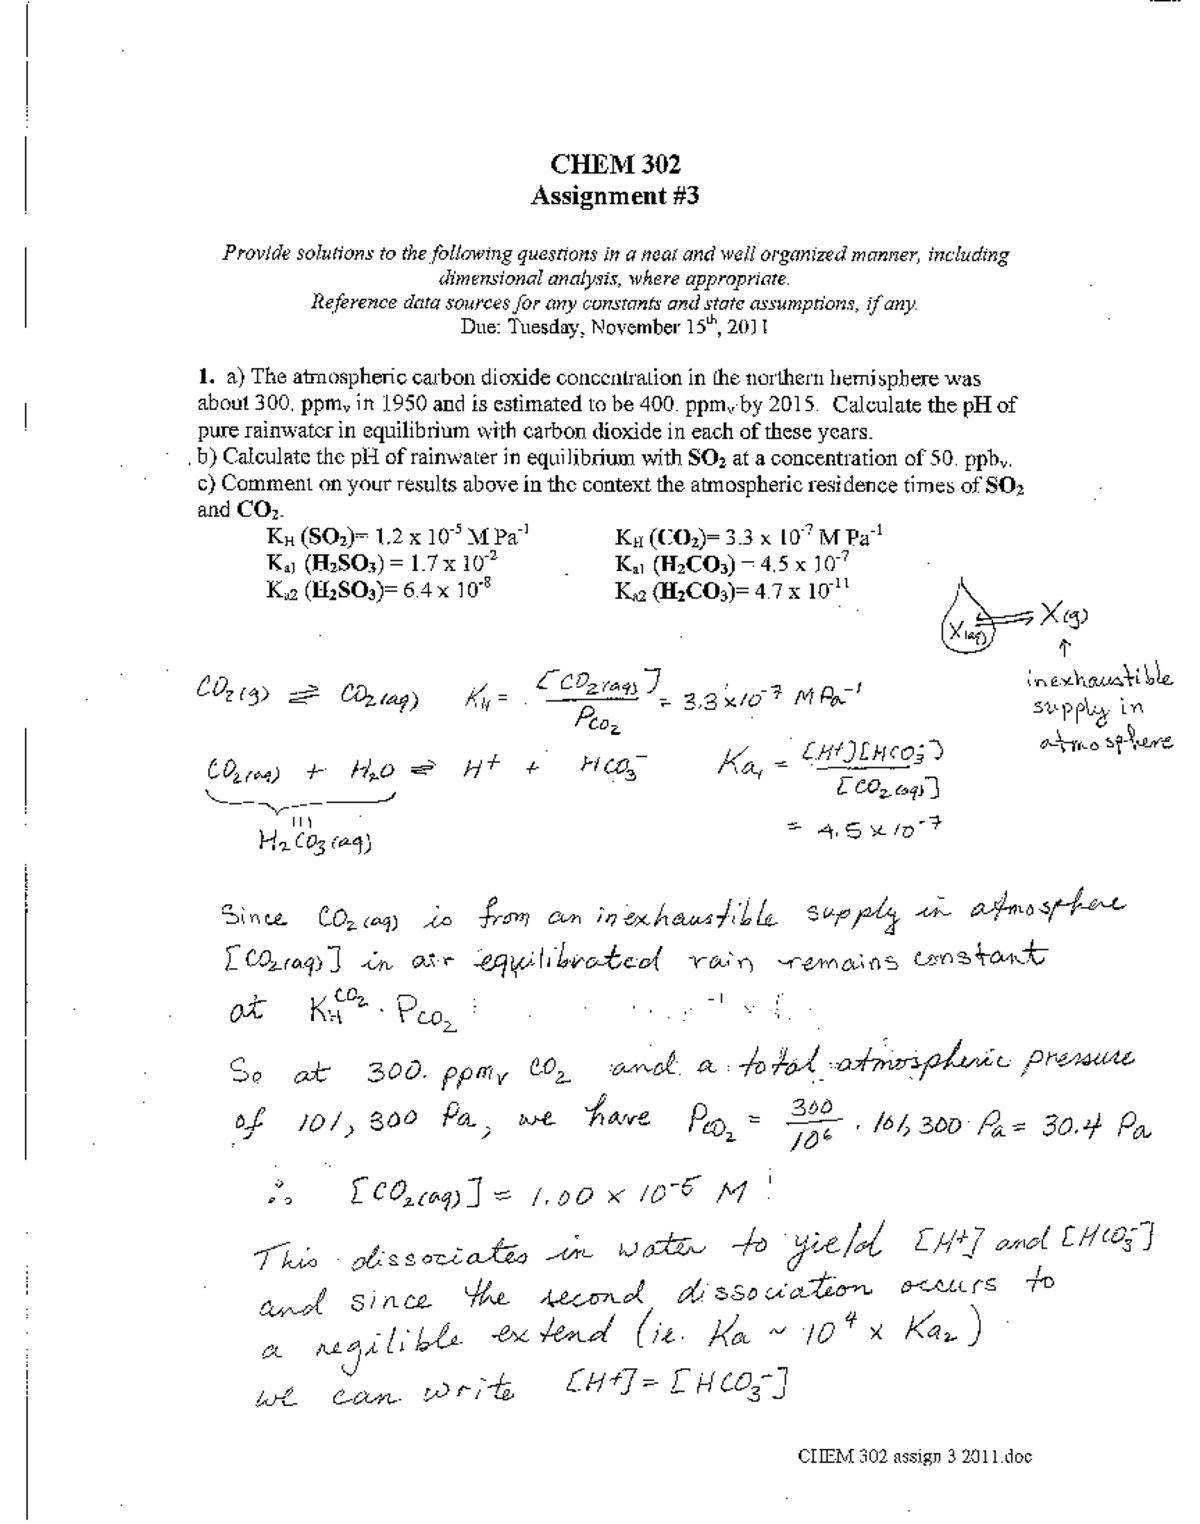 CHEM 302
Assignment #3
Provide solutions to the following questions in a neat and well organized manner, including
dimensional analysis, where appropriate.
Reference data sources for any constants and state assumptions, if any.
Due: Tuesday, November 15th, 2011
1. a) The atmospheric carbon dioxide concentration in the northern hemisphere was
about 300. ppmv in 1950 and is estimated to be 400. ppmv by 2015. Calculate the pH of
pure rainwater in equilibrium with carbon dioxide in each of these years.
b) Calculate the pH of rainwater in equilibrium with SO2 at a concentration of 50. ppbv.
c) Comment on your results above in the context the atmospheric residence times of SO2
and CO2.
KH (SO2)= 1.2 x 10-5 M Pa-1 KH (CO2)= 3.3 x 10-7 M Pa-1
Ka1 (H2SO3) = 1.7 x 10-2 Ka1 (H2CO3) = 4.5 x 10-7
Ka2 (H2SO3)= 6.4 x 10-8 Ka2 (H2CO3)= 4.7 x 10-11
X(aq) ⇌ X(g)
↑
inexhaustible
supply in
atmosphere
CO2(g) ⇌ CO2(aq) KH = [CO2(aq)] / PCO2 = 3.3 x 10-7 M Pa-1
CO2(aq) + H2O ⇌ H+ + HCO3- Ka1 = [H+][HCO3-] / [CO2(aq)]
= 4.5 x 10-7
H2CO3(aq)
Since CO2(aq) is from an inexhaustible supply in atmosphere
[CO2(aq)] in air equilibrated rain remains constant
at KHCO2 · PCO2
So at 300. ppmv CO2 and a total atmospheric pressure
of 101,300 Pa, we have PCO2 = 300/106 · 101,300 Pa = 30.4 Pa
∴ [CO2(aq)] = 1.00 x 10-5 M
This dissociates in water to yield [H+] and [HCO3-]
and since the second dissociation occurs to
a negilible extend (ie. Ka ~ 104 x Ka2)
we can write [H+] = [HCO3-]
CHEM 302 assign 3 2011.doc